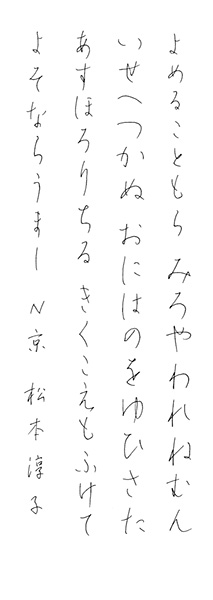 よめることもら みろやわれねむん
いせへつかぬ おにはのをゆひさた
あすほろりちる きくこえもふけて
よそならうまし N京 松本淳子